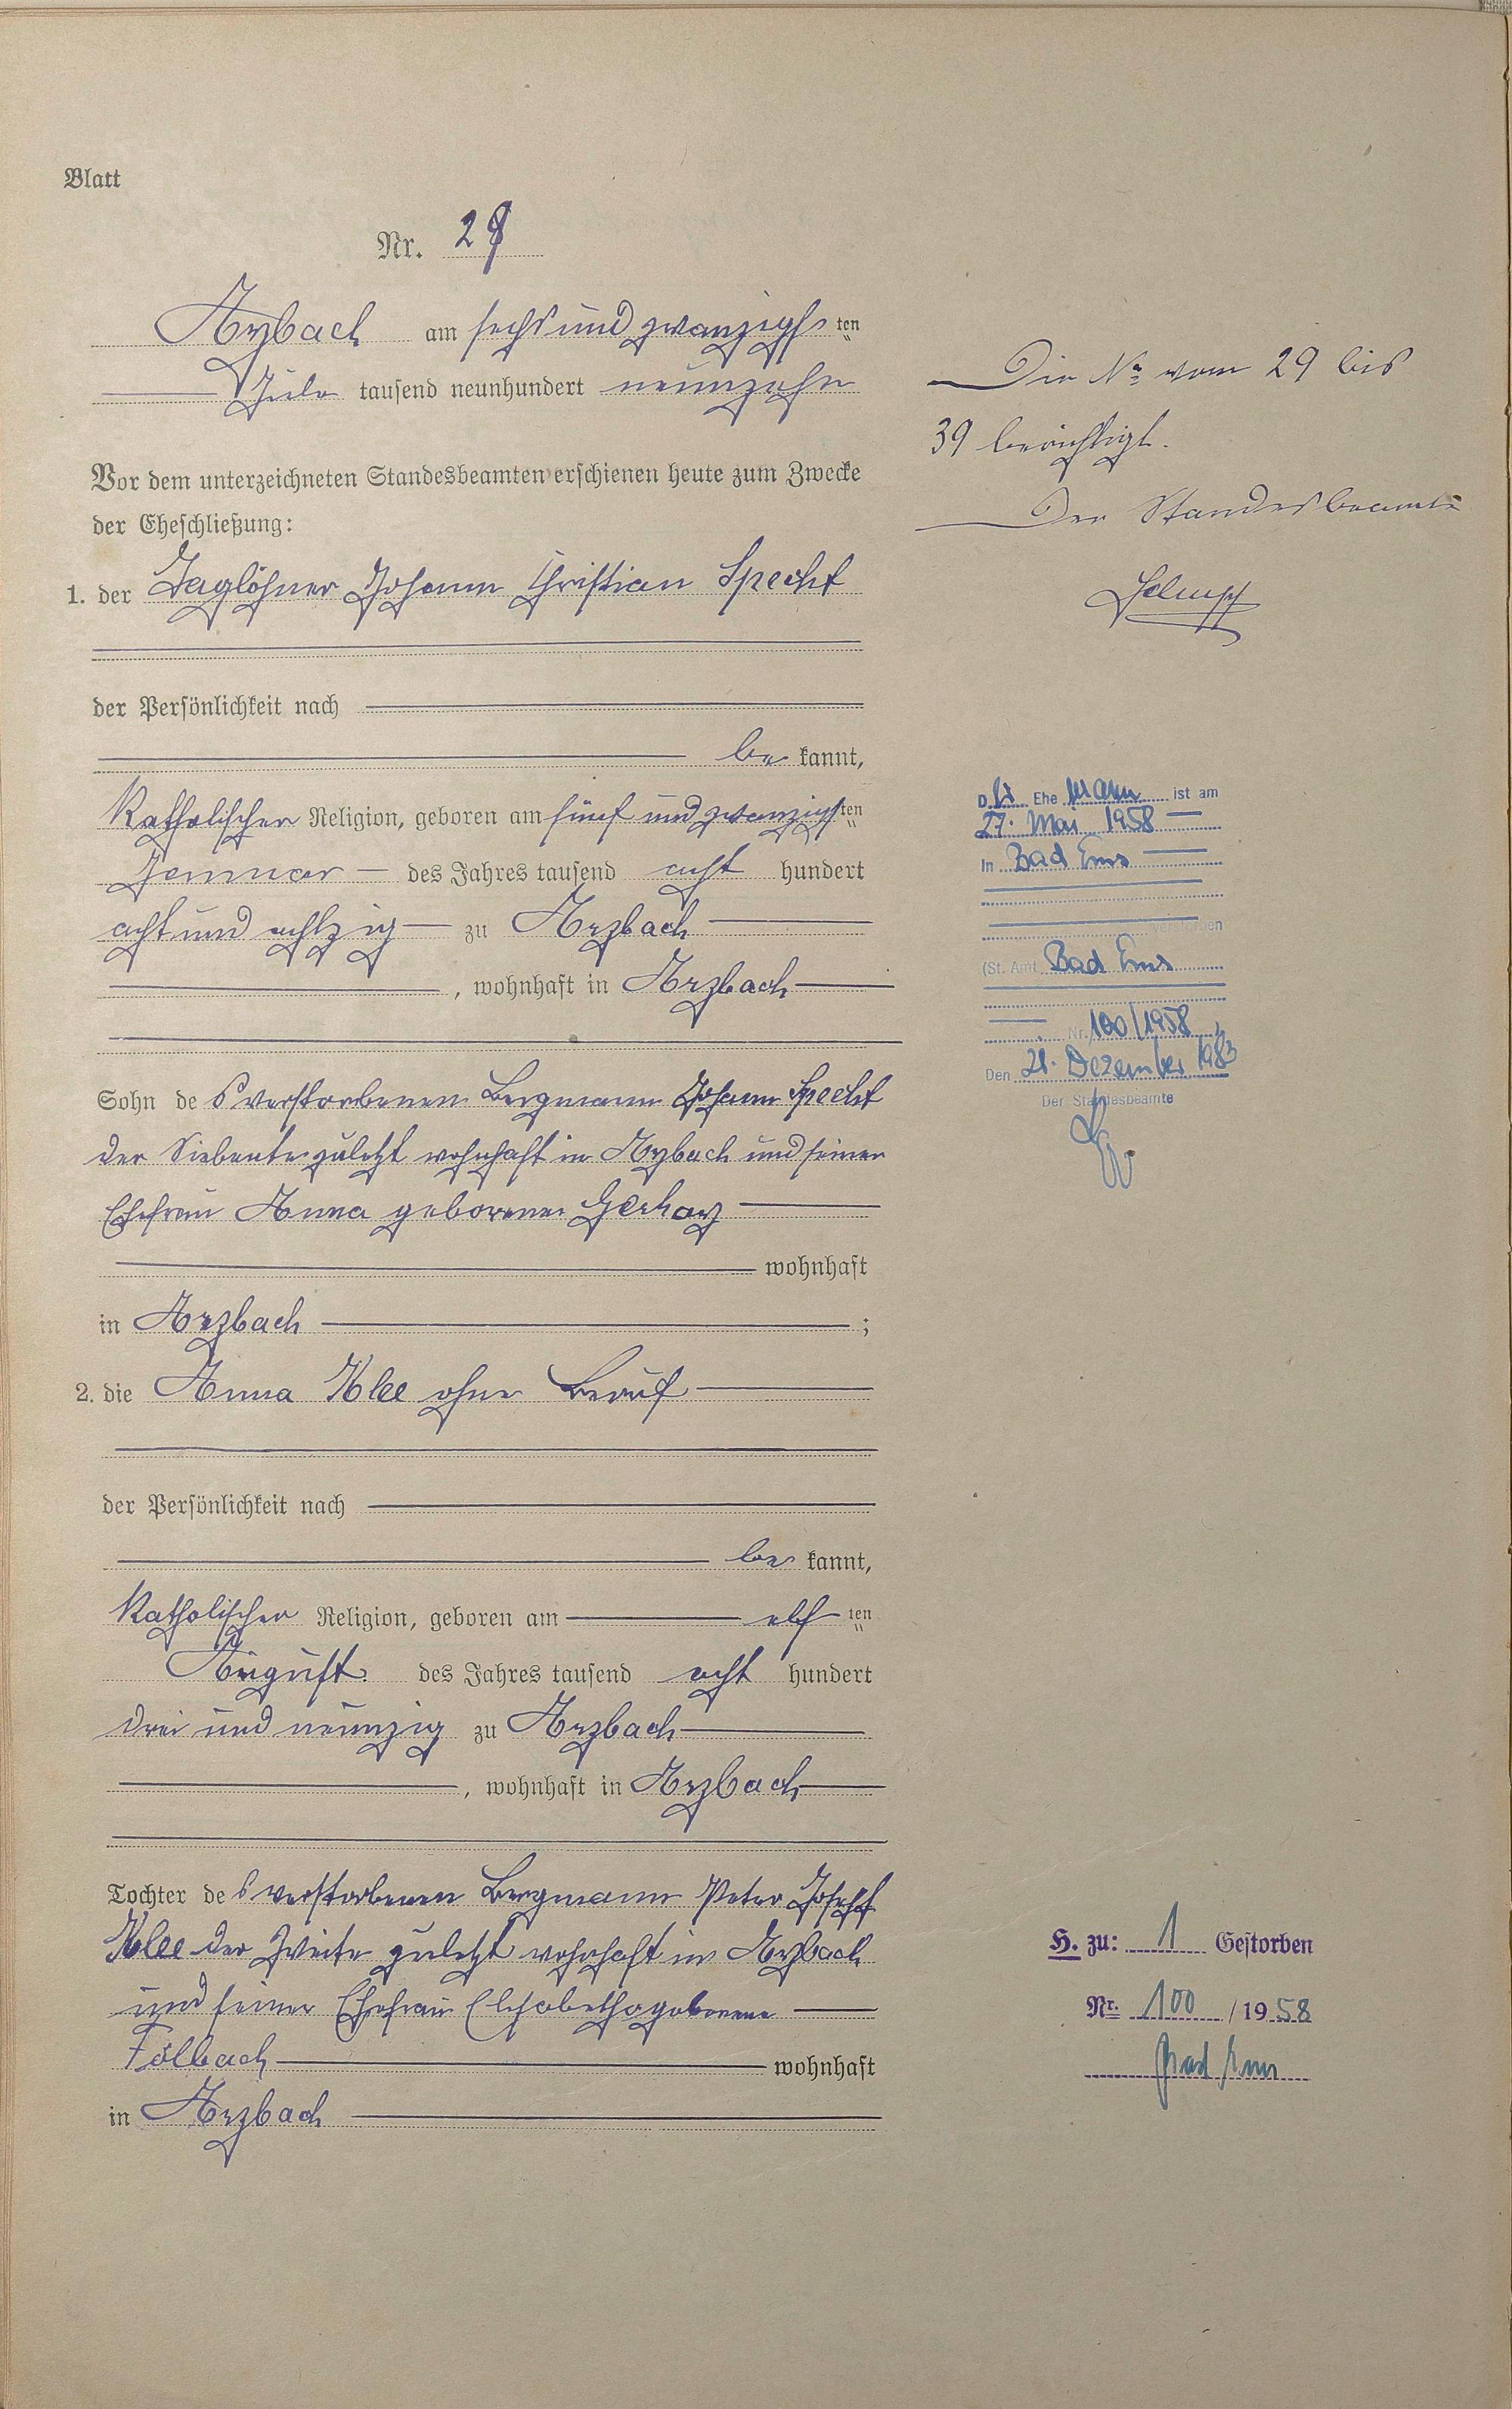 Blatt
Nr. 29
Arzbach am sechs und zwanzigsten
Juli tausend neunhundert neunzehn
Vor dem unterzeichneten Standesbeamten erschienen heute zum Zwecke
der Eheschließung:
1. der Taglöhner Johann Christian Specht
der Persönlichkeit nach
be kannt,
Katholischer Religion, geboren am fünf und zwanzigsten
Januar des Jahres tausend acht hundert
acht und achtzig zu Arzbach
, wohnhaft in Arzbach
Sohn des verstorbenen Bergmann Johann Specht
der Siebente zuletzt wohnhaft in Arzbach und seiner
Ehefrau Anna geborene Gerharz
wohnhaft
in Arzbach ;
2. die Anna Klee ohne Beruf
der Persönlichkeit nach
be kannt,
Katholischer Religion, geboren am elften
August des Jahres tausend acht hundert
drei und neunzig zu Arzbach
, wohnhaft in Arzbach
Tochter des verstorbenen Bergmann Peter Joseph
Klee der Zweite zuletzt wohnhaft in Arzbach
und seiner Ehefrau Elisabetha geborene
Fölbach wohnhaft
in Arzbach
Die No vom 29 bis
39 berichtigt.
Der Standesbeamte
Der Ehemann ist am
27. Mai 1958
in Bad Ems
verstorben
(St. Amt Bad Ems
Nr. 100/1958)
Den 21. Dezember 1983
Der Standesbeamte
H. zu: 1 Gestorben
Nr. 100 / 1958
Bad Ems